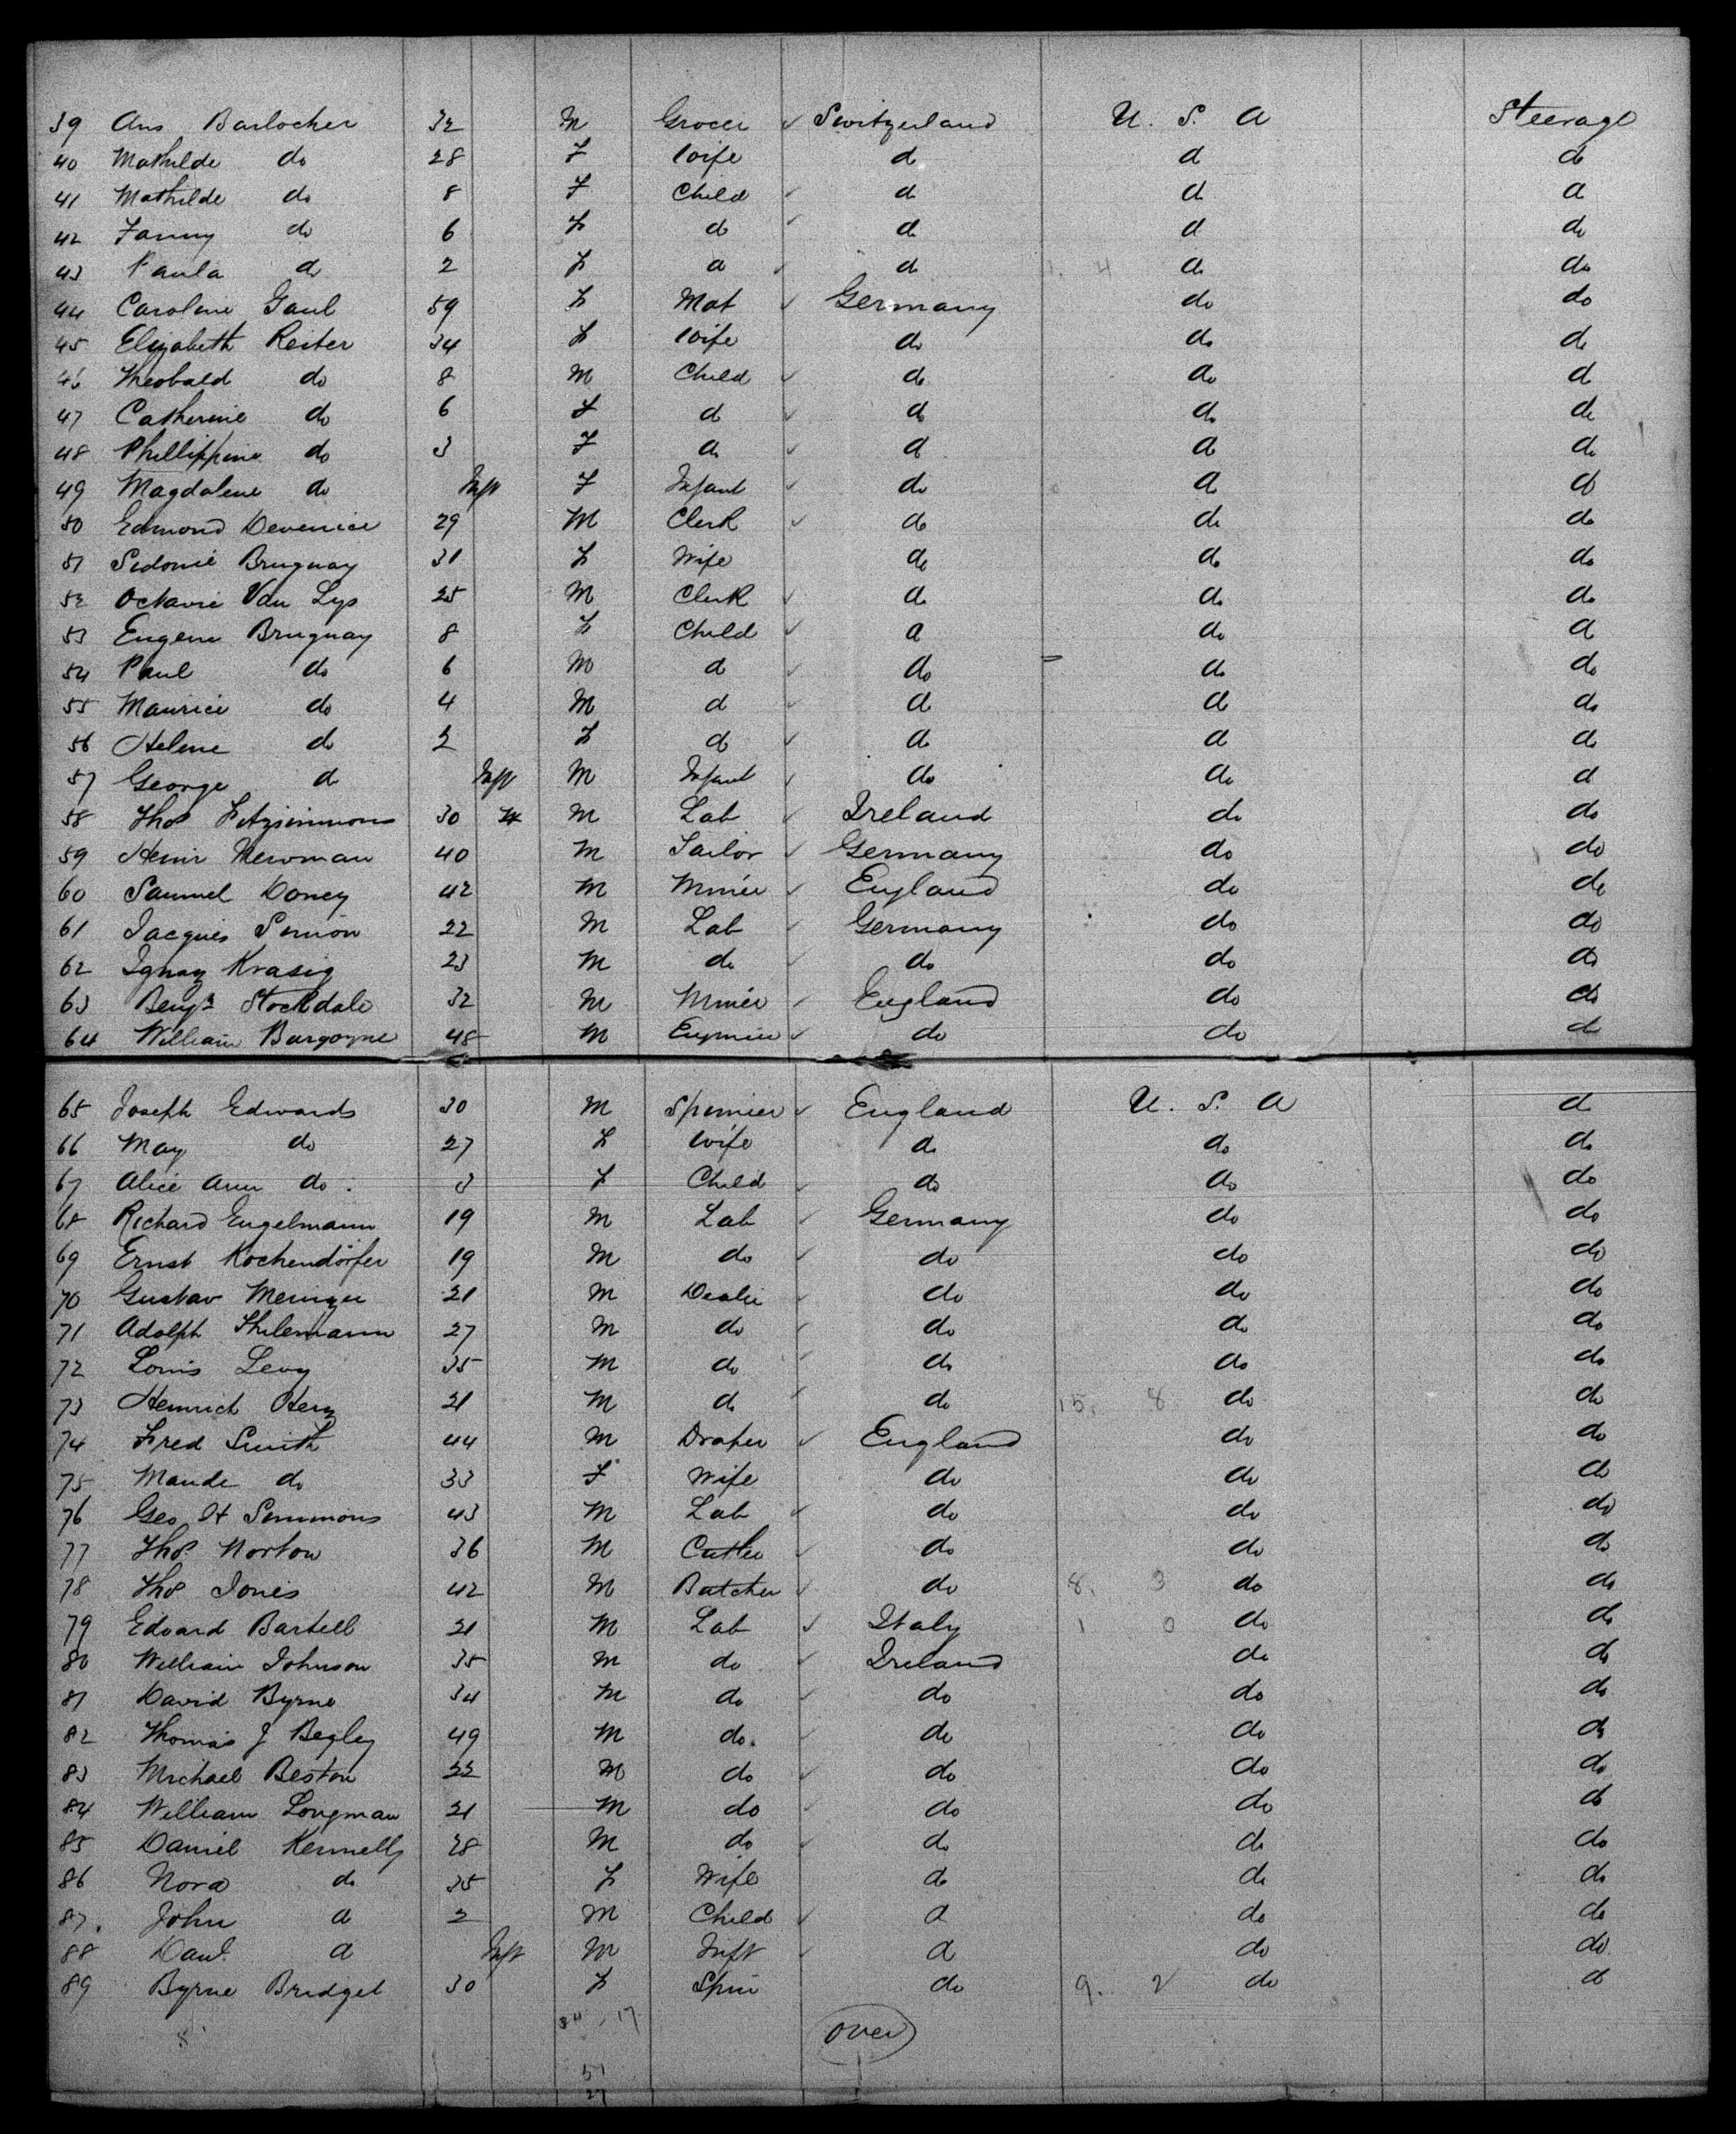 39 Ans Barlocher 32 M Grocer Switzerland U. S. A Steerage
40 Mathilde do 28 F Wife do do do
41 Mathilde do 8 F Child do do do
42 Fanny do 6 F do do do do
43 Paula do 2 F do do do do
44 Caroline Gaul 59 F Mat Germany do do
45 Elizabeth Reiter 34 F Wife do do do
46 Theobald do 8 M Child do do do
47 Catherine do 6 F do do do do
48 Phillippine do 3 F do do do do
49 Magdalene do Inft F Infant do do do
50 Edmond Devenice 29 M Clerk do do do
51 Sidonie Bruguay 31 F Wife do do do
52 Octavie Van Lys 25 M Clerk do do do
53 Eugene Bruguay 8 F Child do do do
54 Paul do 6 M do do do do
55 Maurice do 4 M do do do do
56 Helene do 2 F do do do do
57 George do Inft M Infant do do do
58 Thos Fitzsimmons 30 M Lab Ireland do do
59 Henir Newman 40 M Tailor Germany do do
60 Samuel Doney 42 M Miner England do do
61 Jacques Simon 22 M Lab Germany do do
62 Ignaz Krasig 23 M do do do do
63 Benjn Stockdale 32 M Miner England do do
64 William Burgoyne 48 M do do do
65 Joseph Edwards 30 M Spinner England U. S. A do
66 May do 27 F Wife do do do
67 Alice Ann do 3 F Child do do do
68 Richard Engelmann 19 M Lab Germany do do
69 Ernst Kochendörfer 19 M do do do do
70 Gustav 21 M Dealer do do do
71 Adolph Thilemann 27 M do do do do
72 Louis Levy 35 M do do do do
73 Heinrich Herz 21 M do do 15. 8 do do
74 Fred Smith 44 M Draper England do do
75 Maude do 33 F Wife do do do
76 Geo H Simmons 43 M Lab do do do
77 Thos Norton 36 M Cutler do do do
78 Thos Jones 42 M Butcher do 8. 3 do do
79 Edward Bartell 21 M Lab Italy 1 0 do do
80 William Johnson 35 M do Ireland do do
81 David Byrne 34 M do do do do
82 Thomas J Begley 49 M do do do do
83 Michael Beston 22 M do do do do
84 William Longman 21 M do do do do
85 Daniel Kennelly 28 M do do do do
86 Nora do 35 F Wife do do do
87. John do 2 M Child do do do
88 Danl. do Inft M Inft do do do
89 Byrne Bridget 30 F Spin do 9. 2 do do
34 17
over
51
27